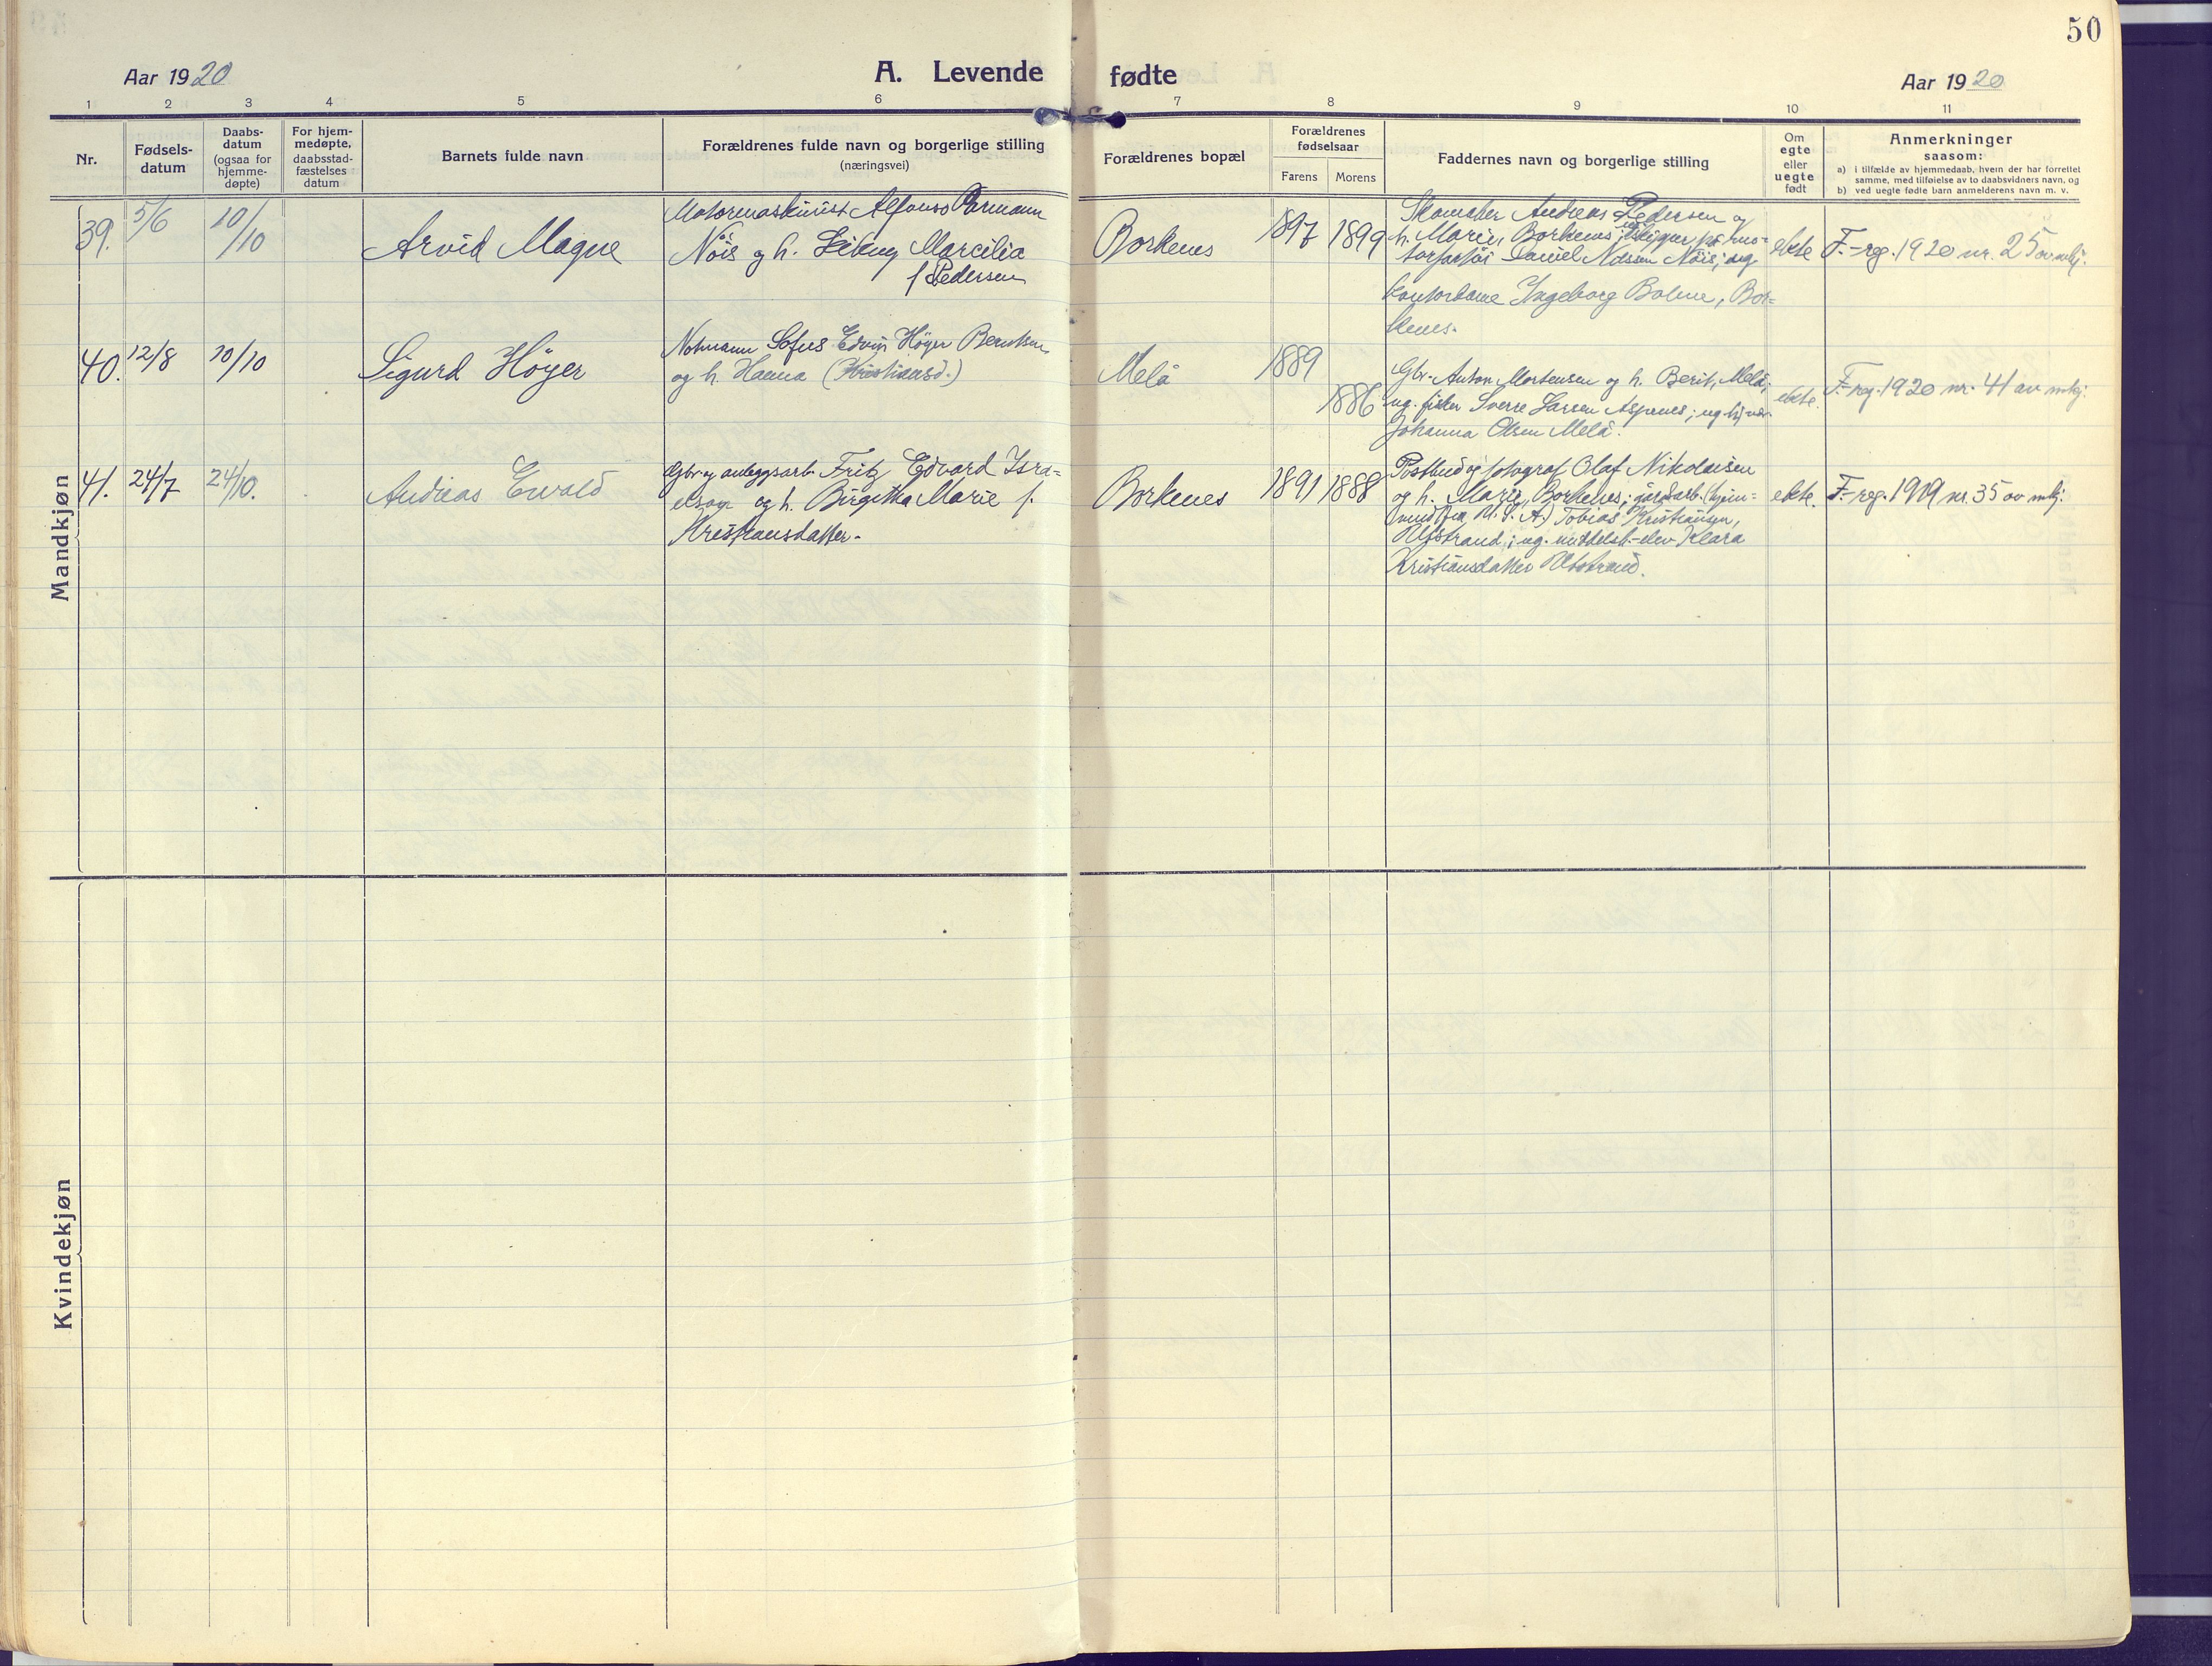 50
Aar 1920
A. Levende fødte
Aar 1920
1 2 3 4 5 6 7 8 9 10 11
Nr.
Fødsels-
datum
Daabs-
datum
(ogsaa for
hjemme-
døpte)
For hjem-
medøpte,
daabsstad-
fæstelses
datum
Barnets fulde navn
Forældrenes fulde navn og borgerlige stilling
(næringsvei)
Forældrenes bopæl
Forældrenes
fødselsaar
Farens Morens
Faddernes navn og borgerlige stilling
Om
egte
eller
uegte
født
Anmerkninger
saasom:
a) i tilfælde av hjemmedaab, hvem der har forrettet
samme, med tilføielse av to daabsvidners navn, og
b) ved uegte fødte barn anmelderens navn m. v.
Mandkjøn
39.
5/6
10/10
Arvid Magne
Motormaskinist Alfonso Parmann
Nöis og h. Marcilia
f. Pedersen
Borkenes
1897 1899
Skomaker Andreas Pedersen og
h. Marie, Borkenes;
Daniel Nilsen Nöis; ug.
kontordame Ingeborg Bolme, Bor-
kenes.
ekte
F.-reg. 1920 nr. 25 av mkj.
40.
12/8
10/10
Sigurd Höyer
Notmann Sofus Edvin Höyer Berntsen
og h. Hanna (Kristiansd.)
Melå
1889
1886
Gbr. Anton Mortensen og h. Berit, Melå;
ug. fisker Sverre Larsen Aspenes; ug.
Johanna Olsen Melå.
ekte.
F.-reg. 1920 nr. 41 av mkj.
41.
24/7
24/10.
Andreas Ewald
Gbr. og anleggsarb. Fritz Edvard Isra-
elsen og h. Birgitha Marie f.
Kristiansdatter.
Borkenes
1891 1888
Postbud og fotograf Olaf Nikolaisen
og h. Marie, Borkenes; gårdarb. (hjem-
vendt fra U. S. A.) Tobias Kristiansen,
Utstrand; ug. middelsk.-elev Klara
Kristiansdatter Utstrand.
ekte.
F.-reg. 1919 nr. 35 av mkj.
Kvindekjøn